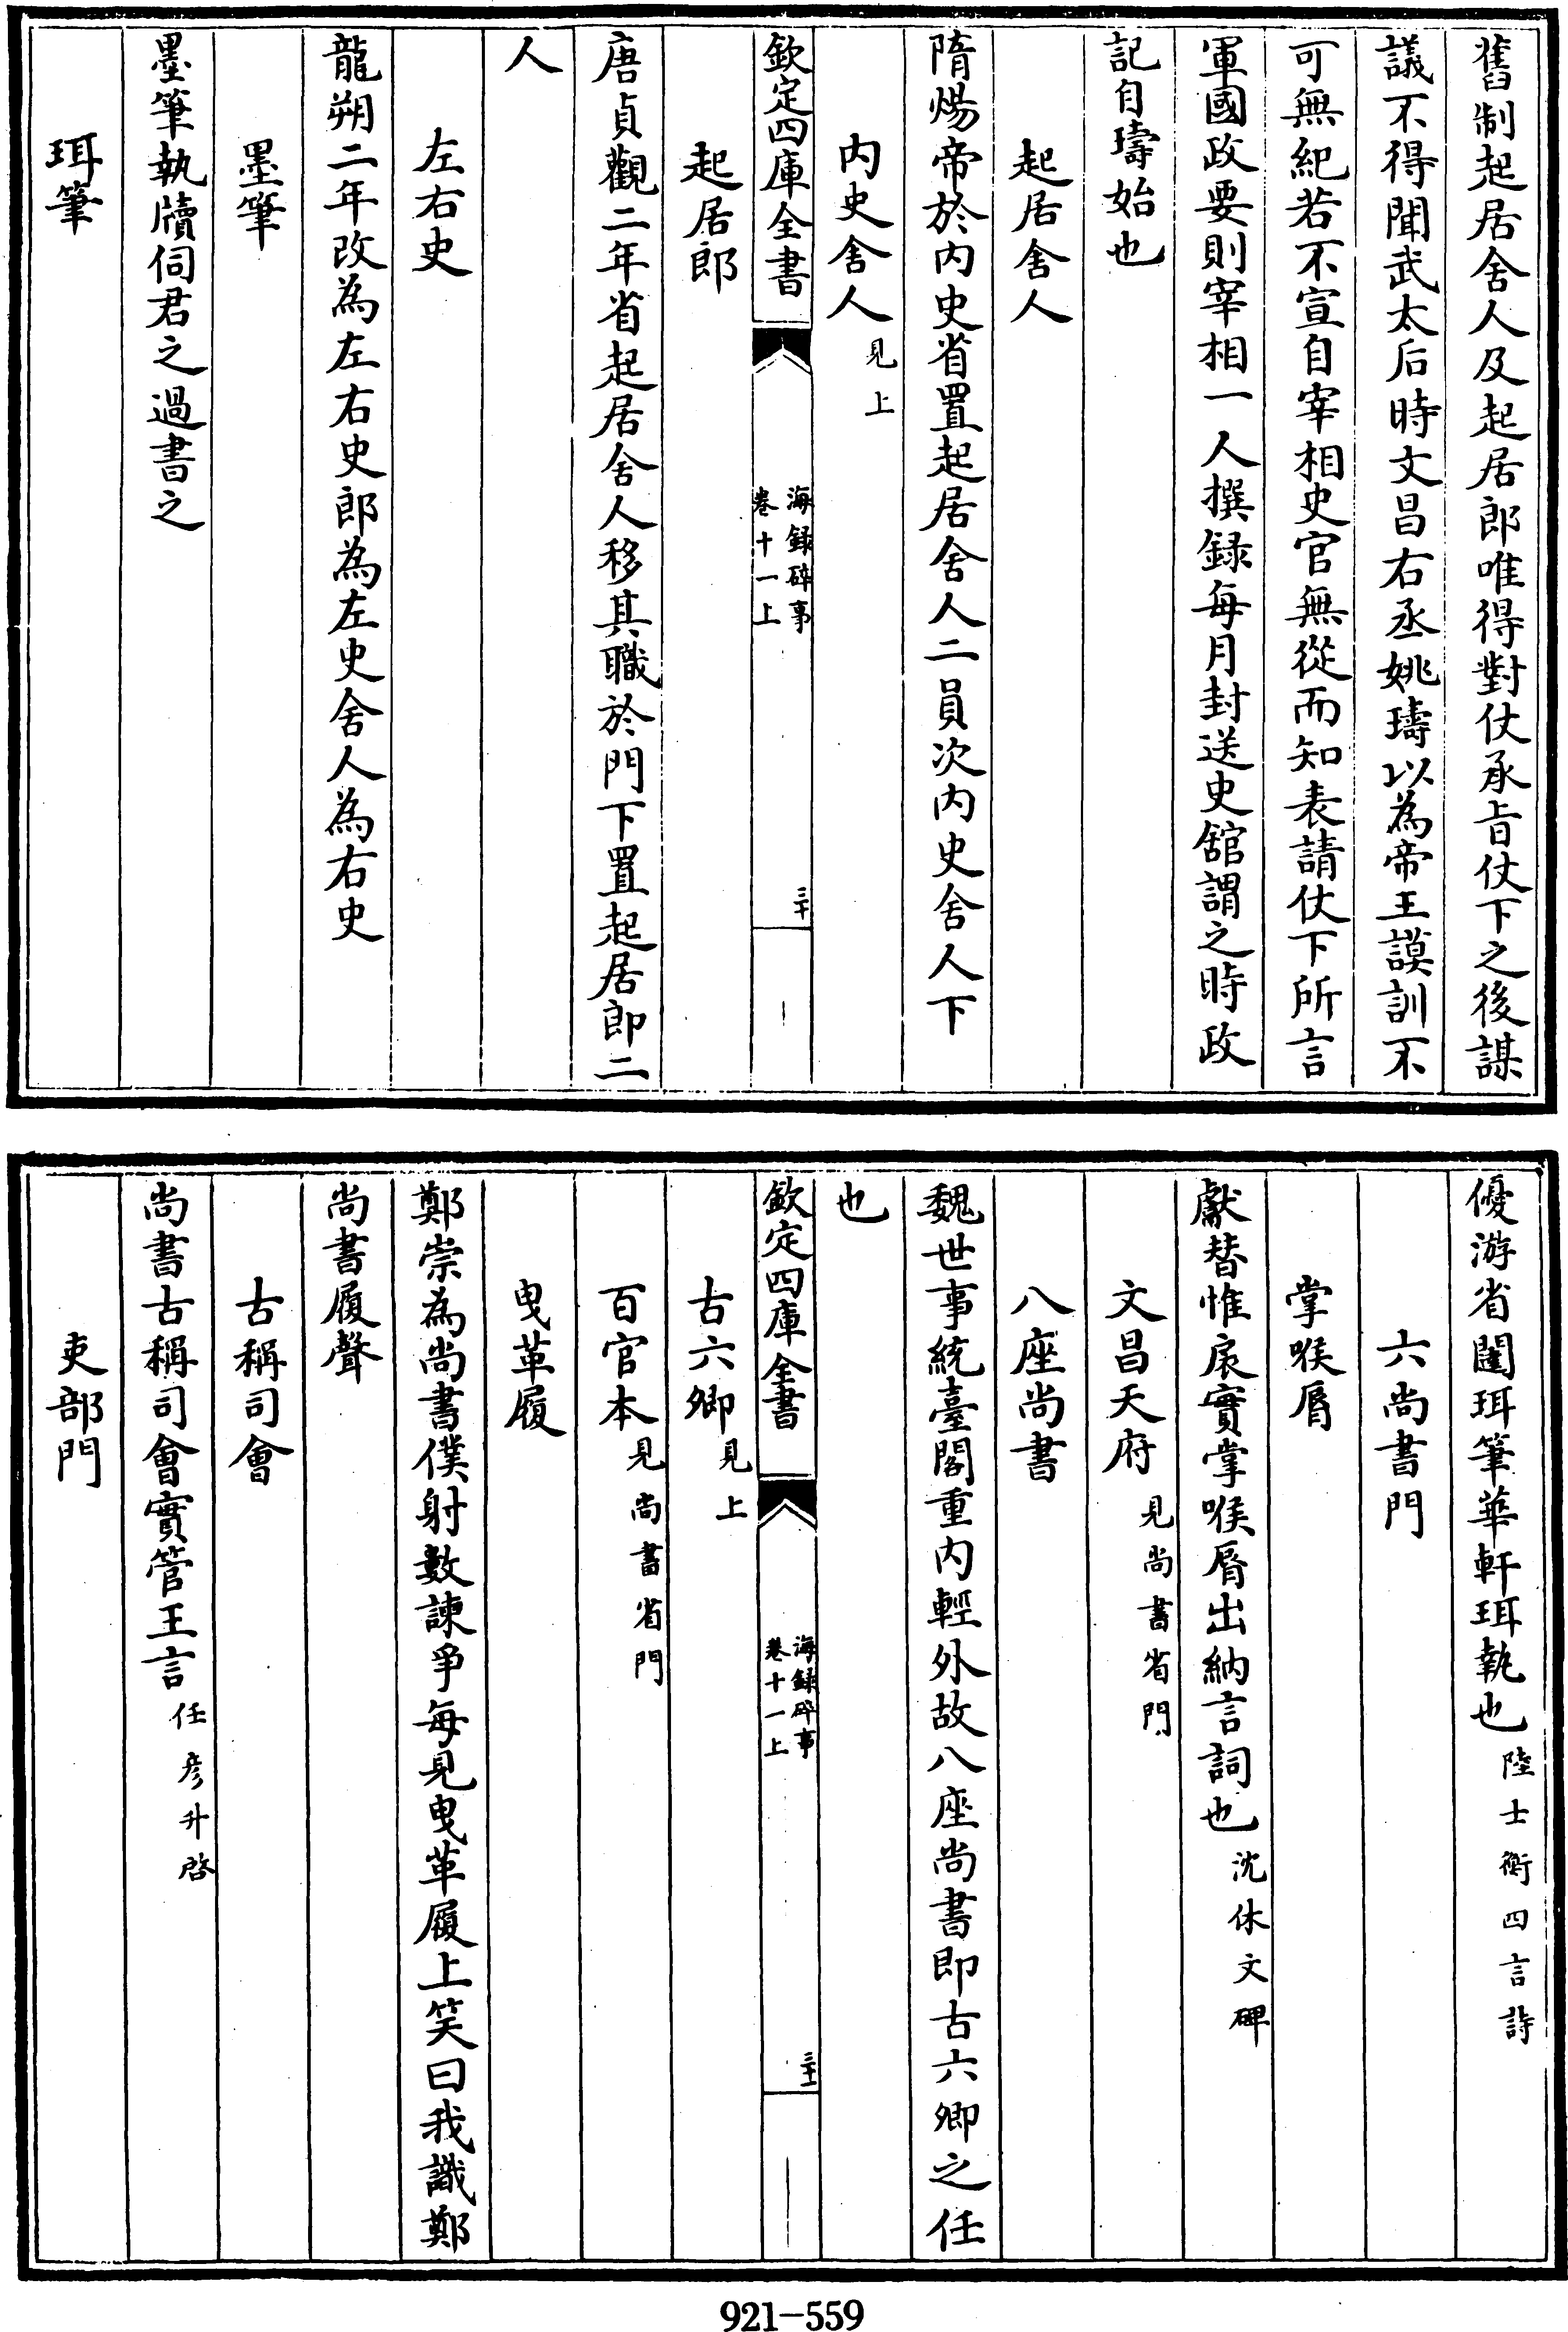 舊制起居舍人及起居郎唯得對仗承旨仗下之後謀
議不得聞武太后時文昌右丞姚璹以為帝王謨訓不
可無紀若不宣自宰相史官無從而知表請仗下所言
軍國政要則宰相一人撰録每月封送史舘謂之時政
記自璹始也
起居舍人
隋煬帝於内史省置起居舍人二員次内史舍人下
内史舍人見上
欽定四庫全書
海録碎事
卷十一上
三十
起居郎
唐貞觀二年省起居舍人移其職於門下置起居郎二
人
左右史
龍朔二年改為左右史郎為左史舍人為右史
墨筆
墨筆執牘伺君之過書之
珥筆
優游省闥珥筆華軒珥執也陸士衡四言詩
六尚書門
掌喉脣
獻替惟扆實掌喉脣出納言詞也沈休文碑
文昌天府見尚書省門
八座尚書
魏世事統臺閣重内輕外故八座尚書即古六卿之任
也
欽定四庫全書
海録碎事
卷十一上
三十一
古六卿見上
百官本見尚書省門
曳革履
鄭崇為尚書僕射數諫爭每見曳革履上笑曰我識鄭
尚書履聲
古稱司會
尚書古稱司會實管王言任彥升啓
吏部門
921-559